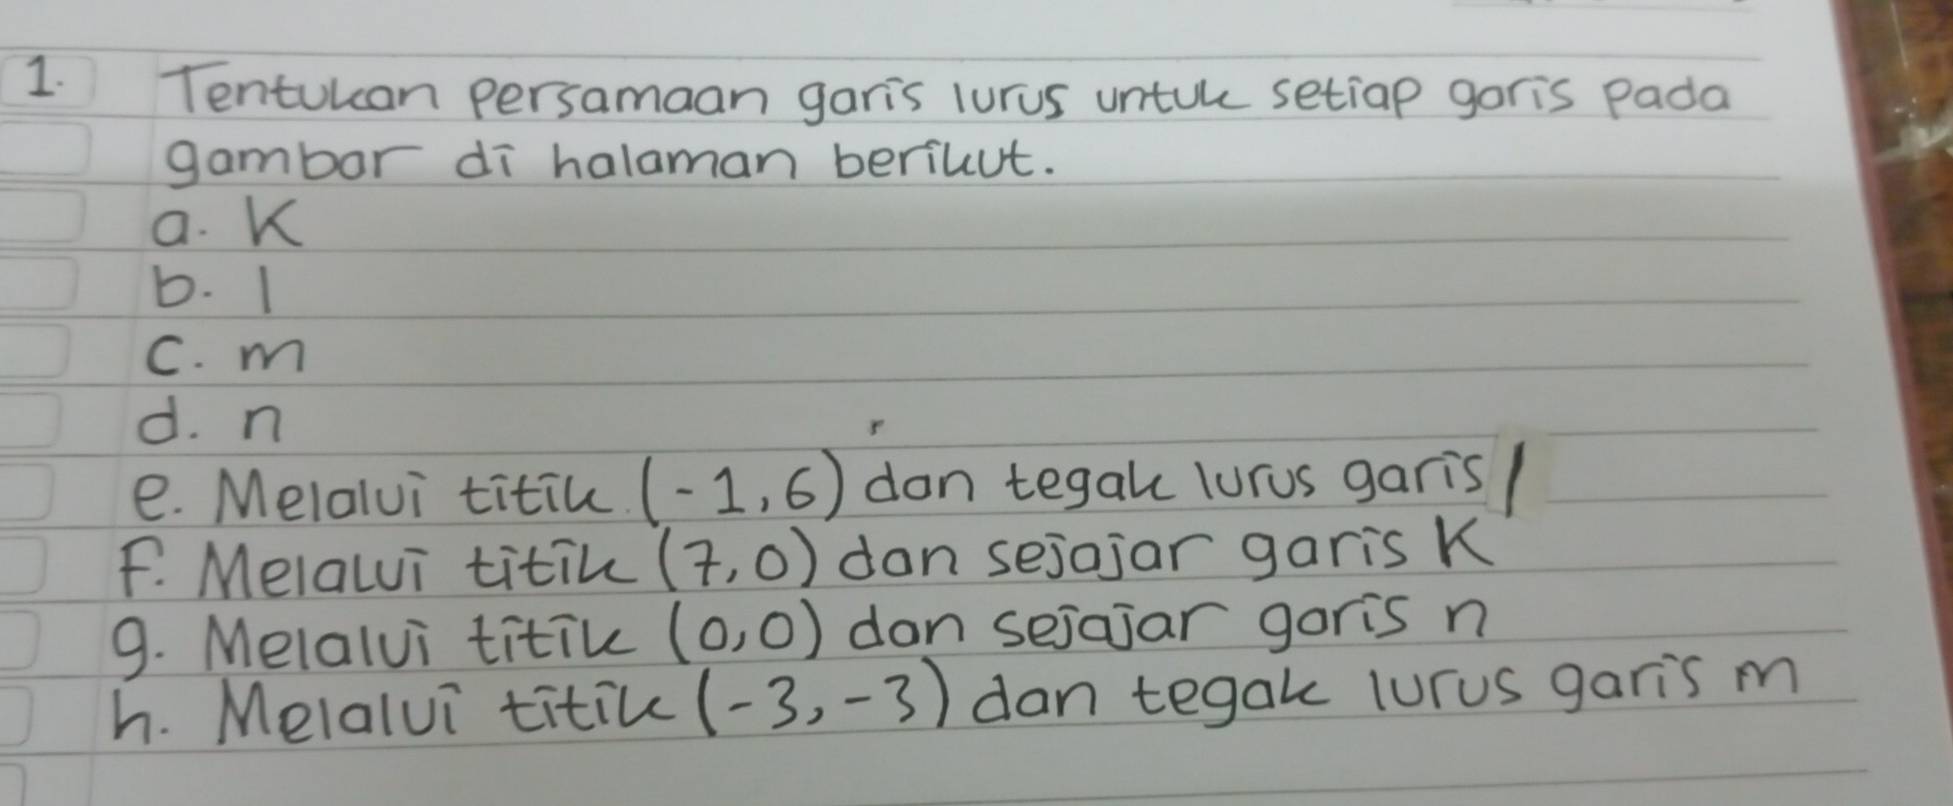 1. Tentukan persamaan garis lurus untuk setiap garis pada
gambar di halaman berikut.
a. K
b. l
c. m
d. n
e. Melalui titik (-1,6) dan tegak lurus garis l
f. Melalui titik (7,0) dan sejajar garis K
g. Melalui titik (0,0) dan sejajar garis n
h. Melalui titik (-3,-3) dan tegak lurus garis m